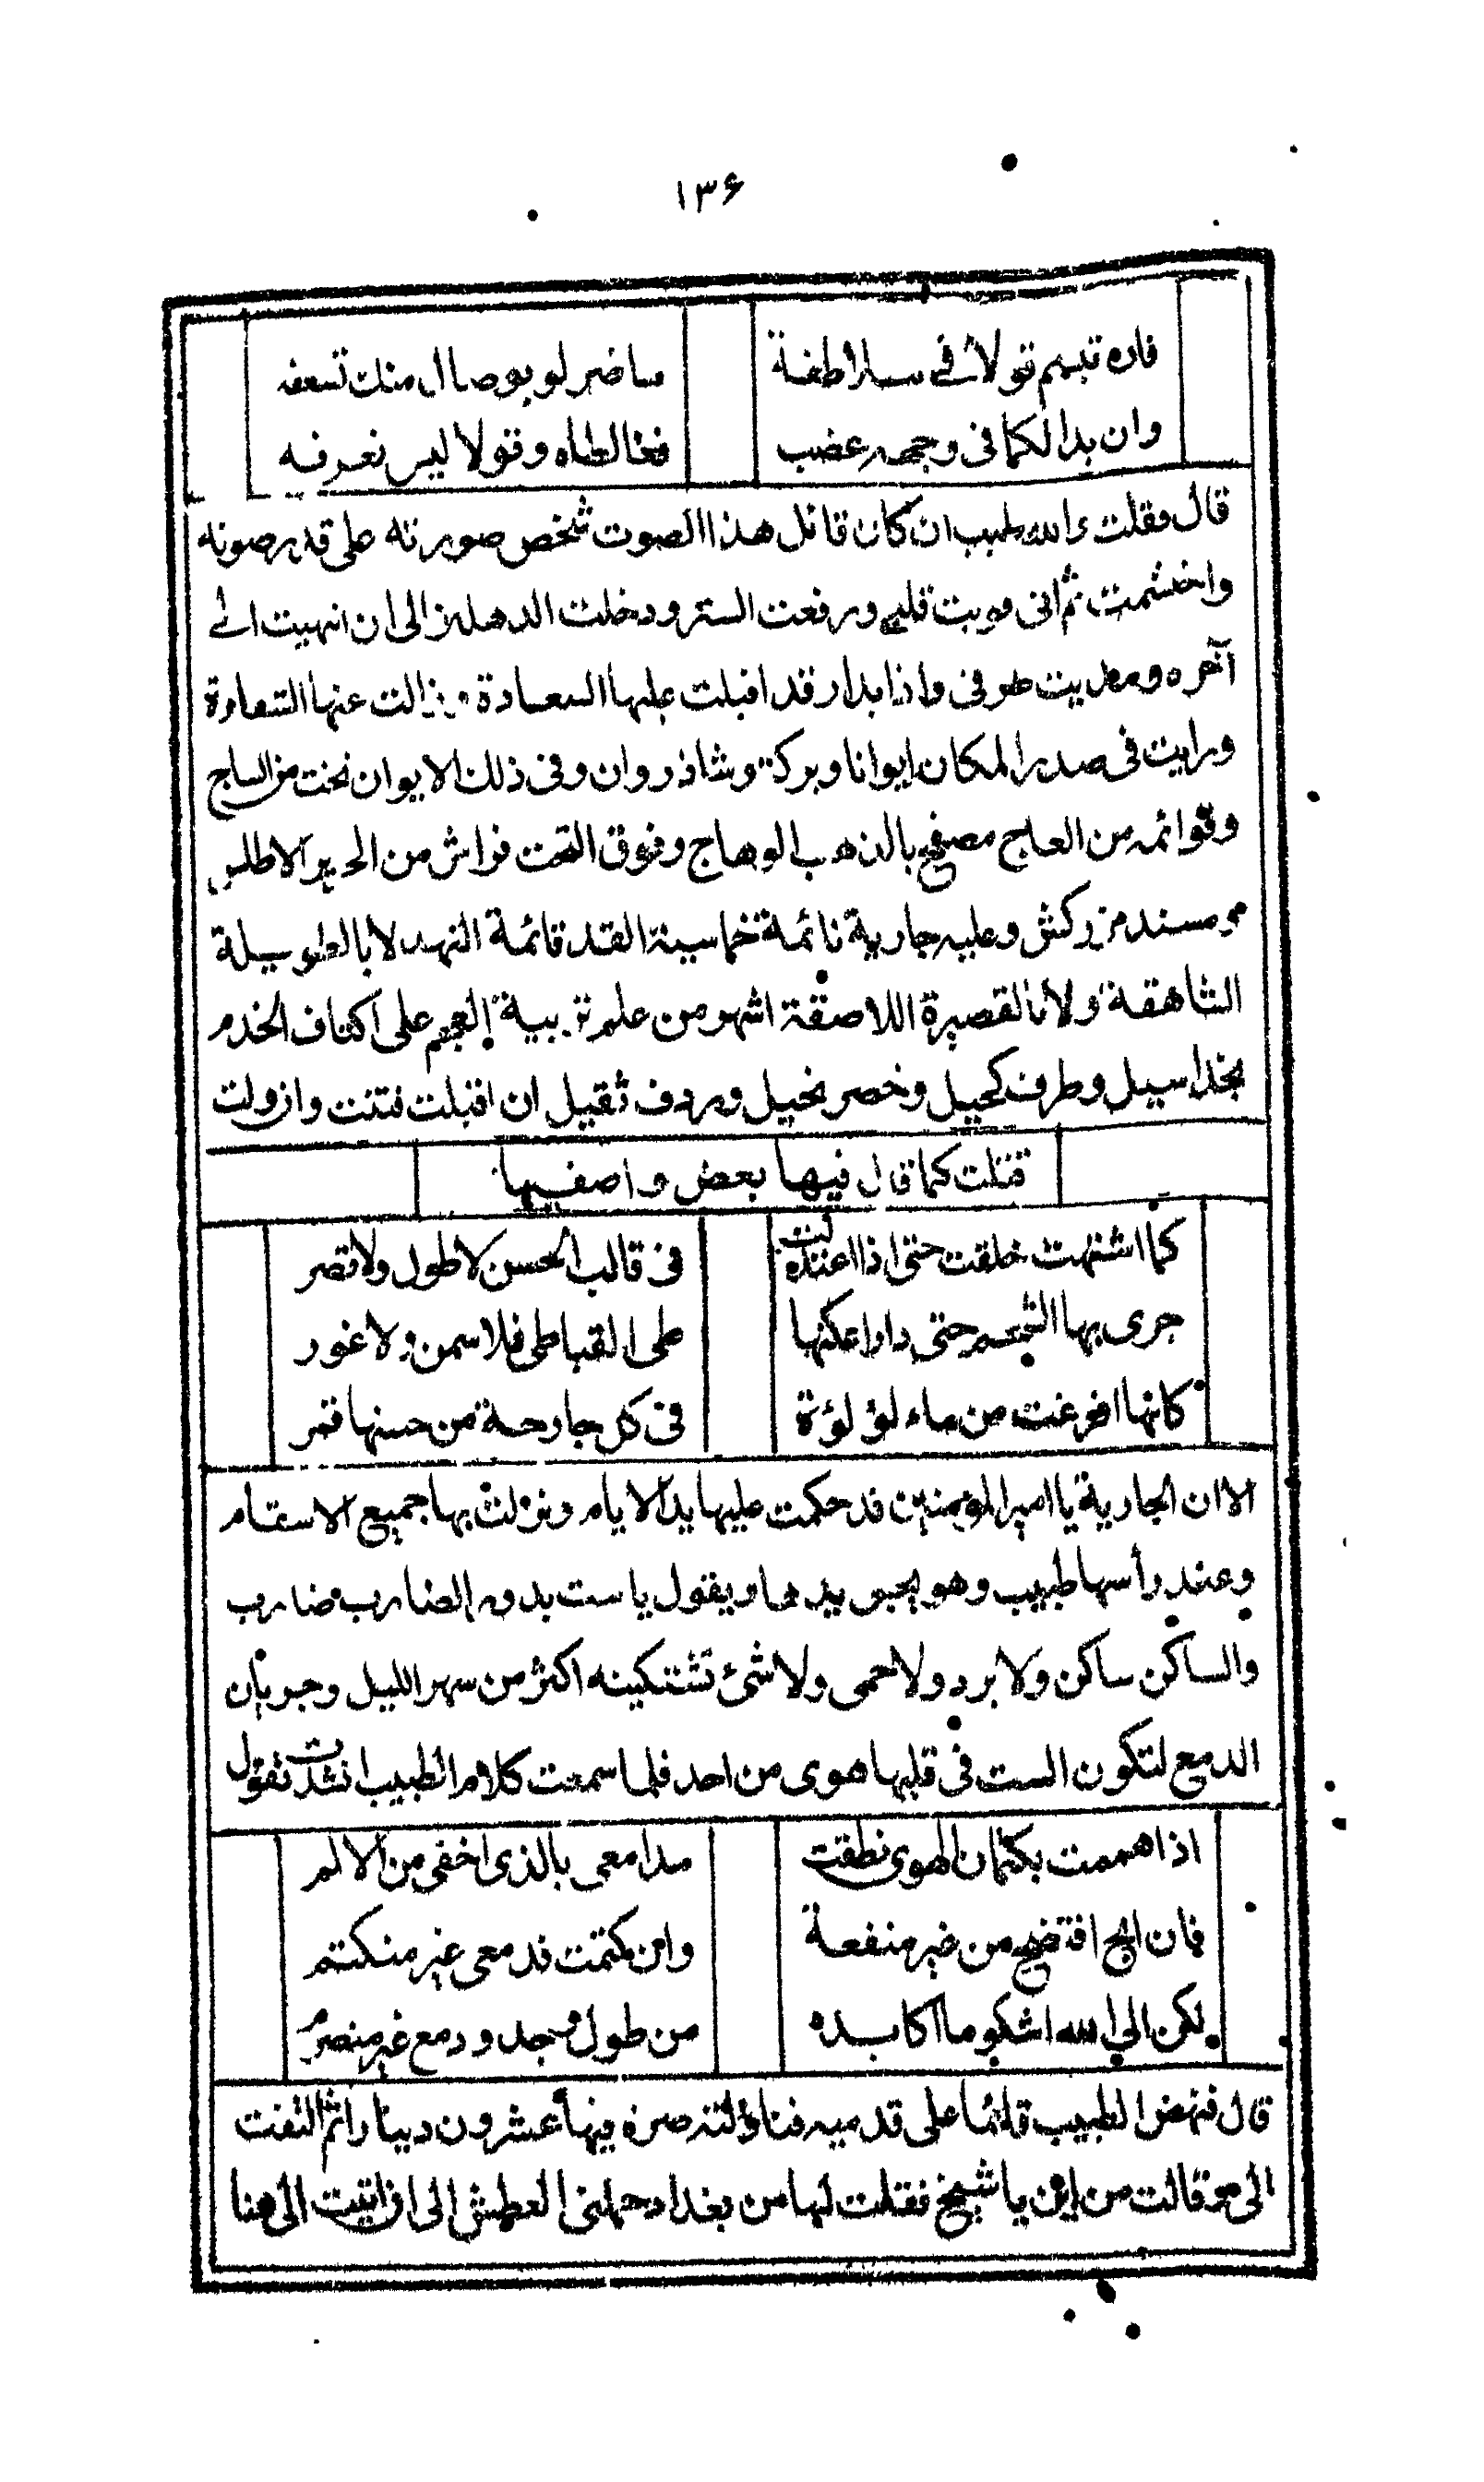 ۱۳۶
فان تبسم قولا في ملاطفة ما ضر لو بوصال منك تسعفه
وان بدا لكما فى وجهه غضب فغالطاه وقولا ليس نعرفه
قال فقلت والله طبيب ان كان قائل هذا الصوت شخص صورته على قدر صوته
واختشمت ثم انى قويت قلبي ورفعت الستر ودخلت الدهليز الى ان انتهيت الى
آخره ومديت طرفى واذا بدار قد اقبلت عليها السعادة وزالت عنها الشعاوة
ورايت فى صدر المكان ايوانا وبركة وشاذروان وفى ذلك الايوان تخت من الساج
وقوائمه من العاج مصفح بالذهب الوهاج وفوق التخت فراش من الحرير الاطلس
ومسند مزركش وعليه جارية نائمة خماسية القد قائمة النهد لا بالطويلة
الشاهقة ولا بالقصيرة اللاصقة اشهر من علم تربية العجم على اكتاف الخدم
بخد اسيل وطرف كحيل وخصر نحيل وردف ثقيل ان اقبلت فتنت وان ولت
قتلت كما قال فيها بعض واصفيها
كما اشتهت خلقت حتى اذا اعتدلت فى قالب الحسن لا طول ولا قصر
جرى بها الشحم حتى دار اعكنها طى القباطى فلا سمن ولا غور
كانها افرغت من ماء لؤلؤة فى كل جارحة من حسنها قمر
الا ان الجارية يا امير المؤمنين قد حكمت عليها يد الايام ونزلت بها جميع الاسقام
وعند رأسها طبيب وهو يجس يدها ويقول يا ست بدور الضارب ضارب
والساكن ساكن ولا برد ولا حمى ولا شئ تشتكينه اكثر من سهر الليل وجريان
الدمع لتكون الست فى قلبها هوى من احد فلما سمعت كلام الطبيب انشدت تقول
اذا هممت بكتمان الهوى نطقت مدامعى بالذى اخفى من الالم
فان ابح افتضح من غير منفعة وان كتمت فدمعى غير منكتم
لكن الى الله اشكو ما اكابده من طول وجد ودمع غير منصرم
قال فنهض الطبيب قائما على قدميه فناولته صرة فيها عشرون دينارا ثم التفت
الى وقالت من اين يا شيخ فقلت لها من بغداد حملنى العطش الى ان اتيت الى هنا